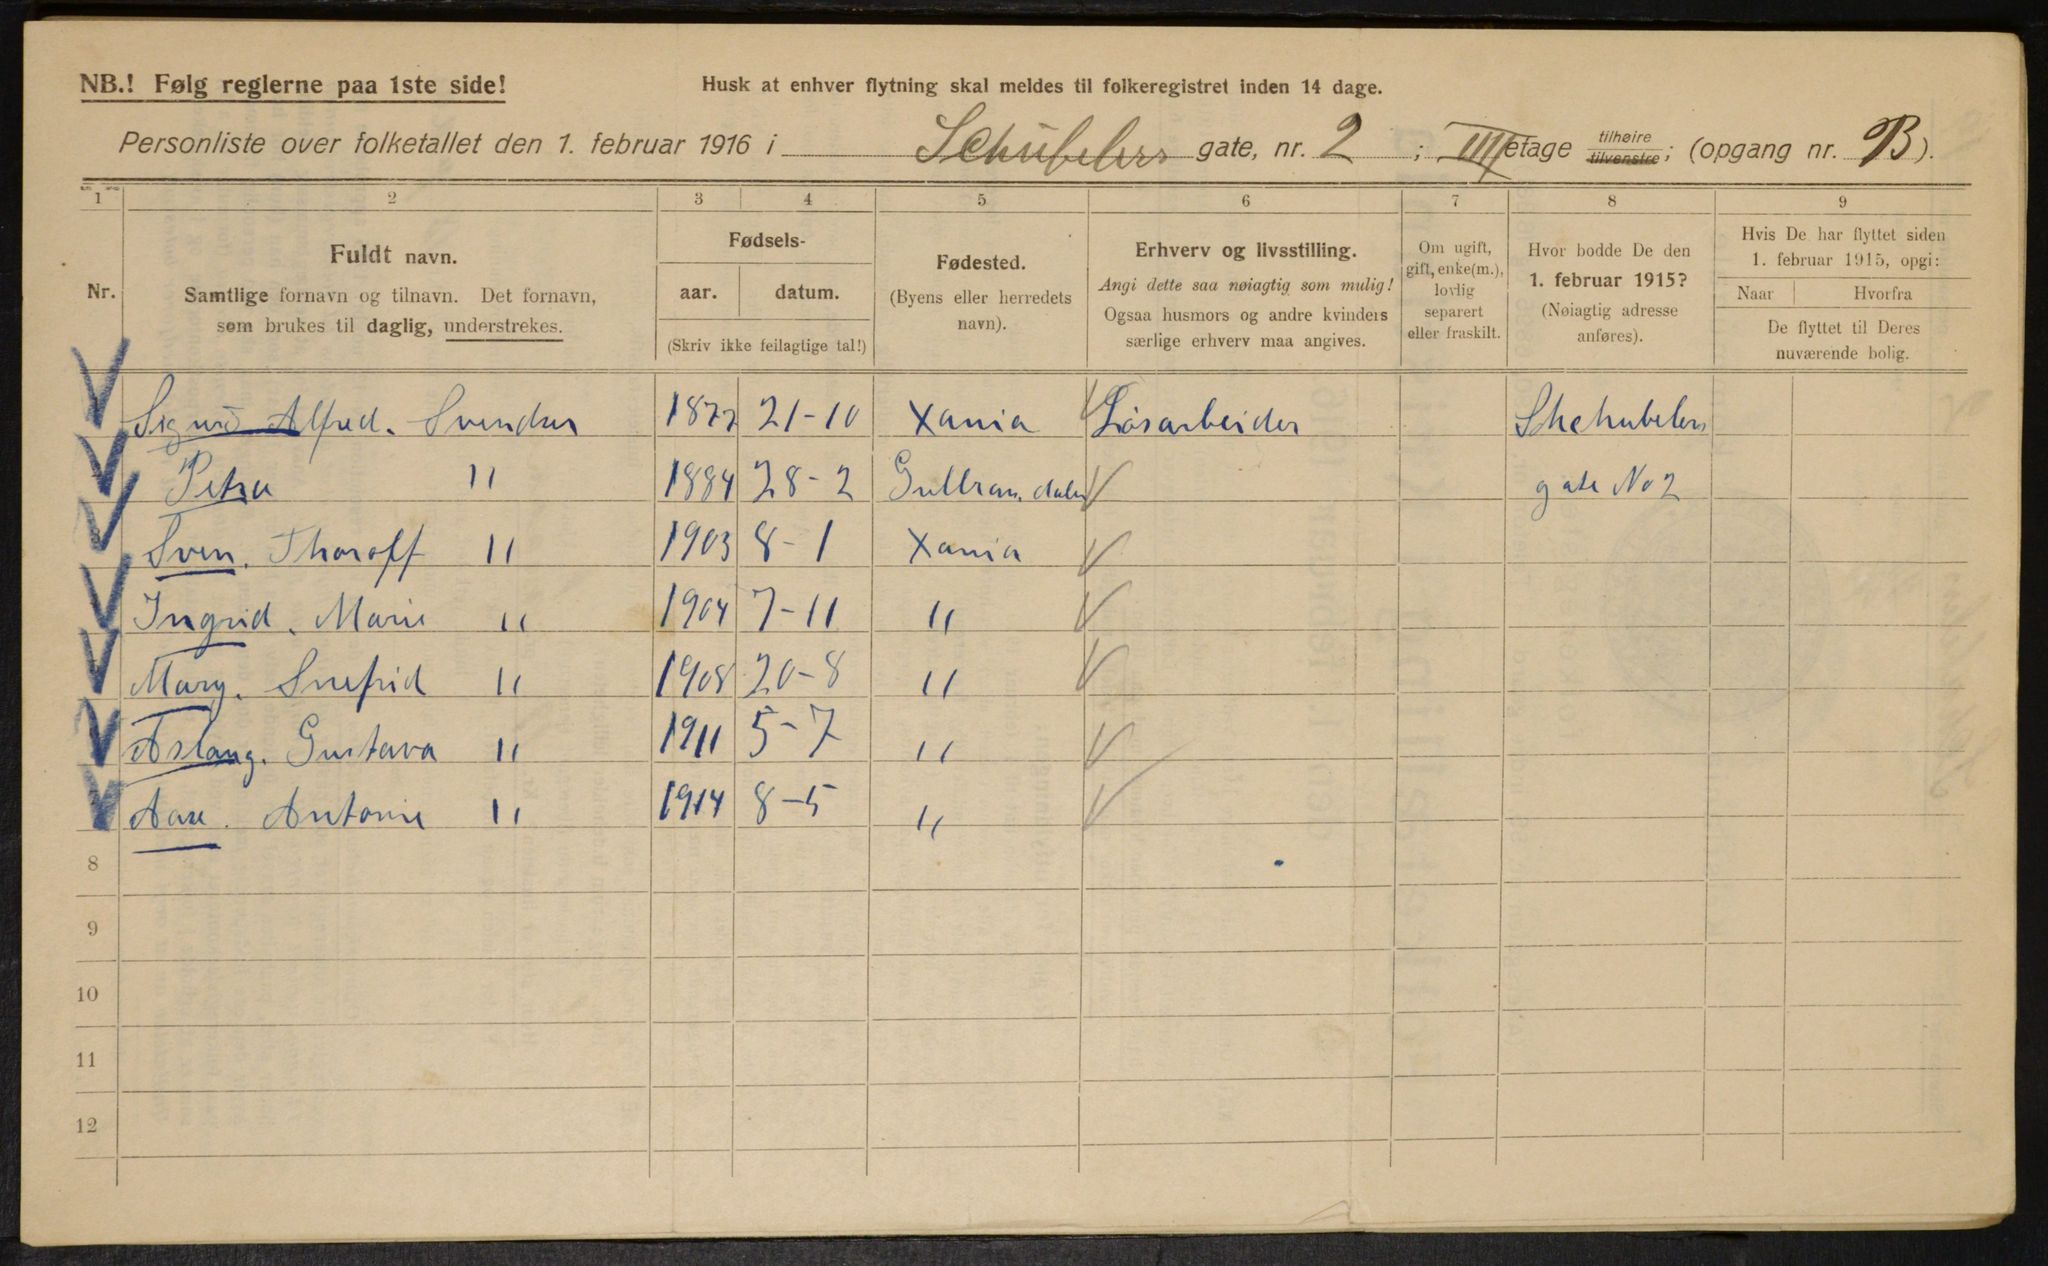 NB.! Følg reglerne paa 1ste side!
Husk at enhver flytning skal meldes til folkeregistret inden 14 dage.
Personliste over folketallet den 1. februar 1916 i Schübelers gate, nr. 2 ; III etage tilhøire tilvenstre; (opgang nr. B).
1 2 3 4 5 6 7 8 9
Nr.
Fuldt navn.
Samtlige fornavn og tilnavn. Det fornavn,
som brukes til daglig, understrekes.
Fødsels-
aar. datum.
(Skriv ikke feilagtige tal!)
Fødested.
(Byens eller herredets
navn).
Erhverv og livsstilling.
Angi dette saa nøiagtig som mulig!
Ogsaa husmors og andre kvinders
særlige erhverv maa angives.
Om ugift,
gift, enke(m.),
lovlig
separert
eller fraskilt.
Hvor bodde De den
1. februar 1915?
(Nøiagtig adresse
anføres).
Hvis De har flyttet siden
1. februar 1915, opgi:
Naar Hvorfra
De flyttet til Deres
nuværende bolig.
Sigurd Alfred. Svendsen 1877 21-10 Xania Løsarbeider Shchubelers
Petra " 1884 28-2 Gulbran. dalen gate No 2
Sven. Thoroff " 1903 8-1 Xania
Ingrid. Marie " 1904 7-11 "
Mary. Snefrid " 1908 20-8 "
Aslaug. Gustava " 1911 5-7 "
Aase. Antonie " 1914 8-5 "
8
9
10
11
12